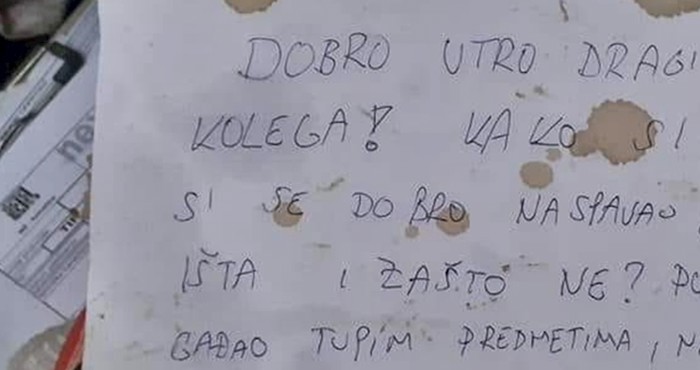 DOBRO UTRO DRAGI
KOLEGA! KAKO SI
SI SE DOBRO NASPAVAO,
IŠTA I ZAŠTO NE? PO
GAĐAO TUPIM PREDMETIMA, N